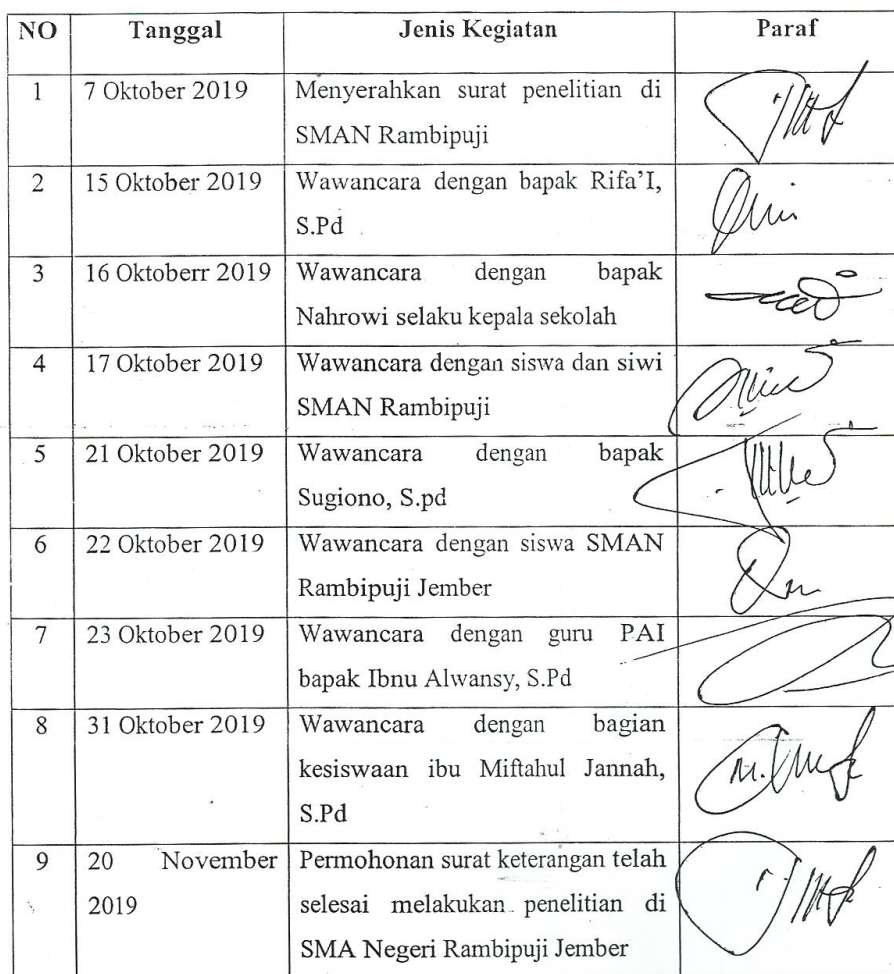 NO Tanggal Jenis Kegiatan Paraf
1 7 Oktober 2019 Menyerahkan surat penelitian di
SMAN Rambipuji
2 15 Oktober 2019 Wawancara dengan bapak Rifa'I,
S.Pd
3 16 Oktoberr 2019 Wawancara dengan bapak
Nahrowi selaku kepala sekolah
4 17 Oktober 2019 Wawancara dengan siswa dan siwi
SMAN Rambipuji
5 21 Oktober 2019 Wawancara dengan bapak
Sugiono, S.pd
6 22 Oktober 2019 Wawancara dengan siswa SMAN
Rambipuji Jember
7 23 Oktober 2019 Wawancara dengan guru PAI
bapak Ibnu Alwansy, S.Pd
8 31 Oktober 2019 Wawancara dengan bagian
kesiswaan ibu Miftahul Jannah,
S.Pd
9 20 November Permohonan surat keterangan telah
2019 selesai melakukan penelitian di
SMA Negeri Rambipuji Jember